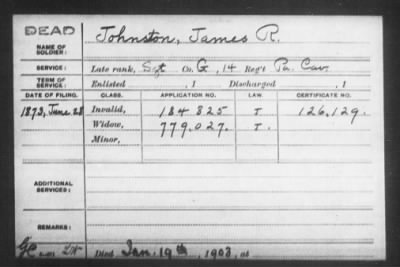 DEAD
NAME OF SOLDIER: Johnston, James R.
SERVICE: Late rank, Sgt Co. G, 14 Reg't Pa. Cav.
TERM OF SERVICE: Enlisted , 1 Discharged , 1
DATE OF FILING. CLASS. APPLICATION NO. LAW. CERTIFICATE NO.
1873, June 28 Invalid, 184 825 J 126,129.
Widow, 779.027. J.
Minor,
ADDITIONAL SERVICES:
REMARKS:
Died Jan. 19th, 1903, at